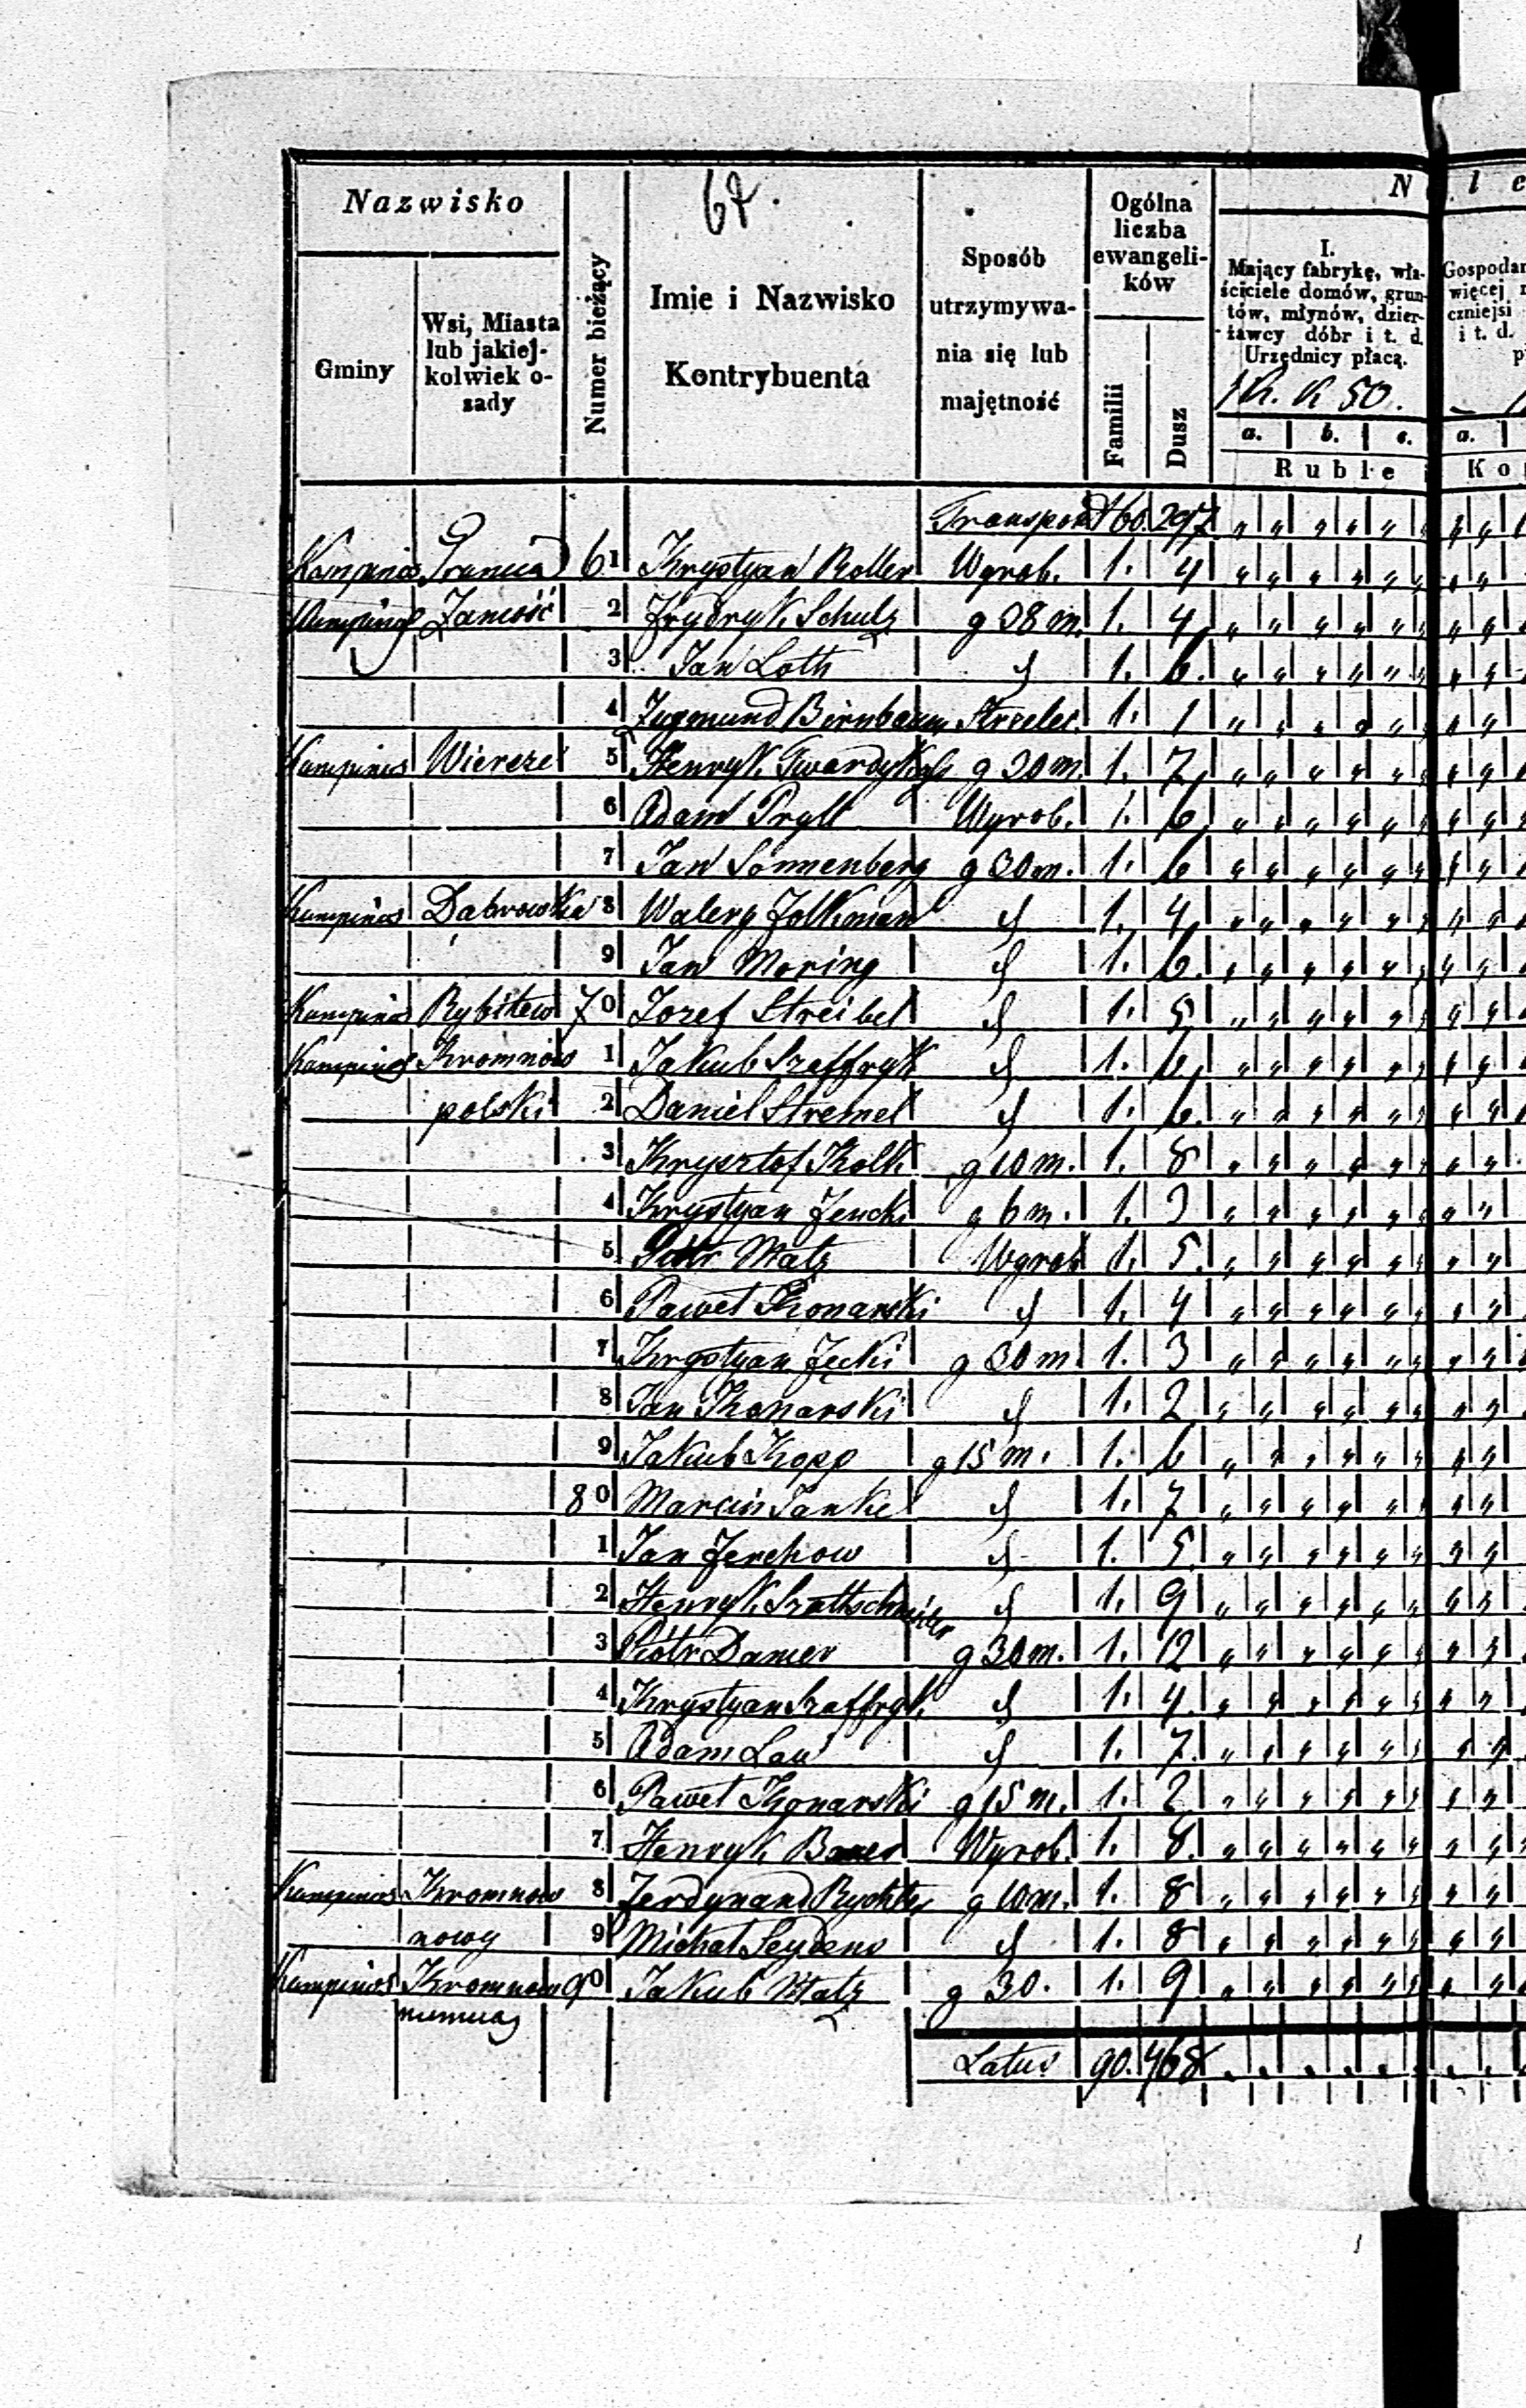 67.
Nazwisko
Gminy
Wsi, Miasta
lub jakiej-
kolwiek o-
sady
Numer bieżący
Imie i Nazwisko
Kontrybuenta
Sposób
utrzymywa-
nia się lub
majętność
Ogólna
liczba
ewangeli-
ków
Familii
Dusz
N l e
I.
Mający fabrykę, wła-
ściciele domów, grun-
tów, młynów, dzier-
żawcy dóbr i t. d.
Urzędnicy płacą.
1 R. K 50.
a. b. c.
Ruble
Gospodar
więcej
czniejsi
i t. d.
p
a.
Ko
Transport 60. 297
Kampinos Granica 61 Krystyan Roller Wyrob. 1. 4
Kampinos Zamość 2 Frydryk Schulz g 28 m. 1. 4
3 Jan Loth 1. 6.
4 Zygmund Birnbaum Strzelec 1. 1
Kampinos Wiersze 5 Henryk g 20 m. 1. 7
6 Adam Pryll Wyrob. 1. 6
7 Jan Sonnenberg g 30 m. 1. 6
Kampinos Dabrowka 8 Walery Folkman 1. 4
9 Jan Moring 1. 6.
Kampinos Rybitew 70 Jozef Streibel 1. 5
Kampinos Kromnow 1 Jakub Szaffryk 1. 6
polski 2 Daniel Stremel 1. 6.
3 Krysztof Kolk g 10 m. 1. 8
4 Krystyan Jencki g 6 m. 1. 3
5 Piotr Matz Wyrob 1. 5.
6 Paweł Konarski 1. 4
7 Krystyan Jęcki g 30 m 1. 3
8 Jan Konarski 1. 2
9 Jakub Kopp g 15 m. 1. 6
80 Marcin Janke 1. 7
1 Jan Jerchow 1. 5.
2 Henryk 1. 9
3 Piotr Damer g 30 m. 1. 12
4 Krystyan Szaffryk 1. 4.
5 Adam Lau 1. 7.
6 Paweł Konarski g 15 m. 1. 2
7 Henryk Wyrob. 1. 8.
Kampinos Kromnow 8 Ferdynand Rychter g 10 m. 1. 8
nowy 9 Michał 1. 8
Kampinos Kromnow 90 Jakub Matz g 30. 1. 9
Latus 90. 468